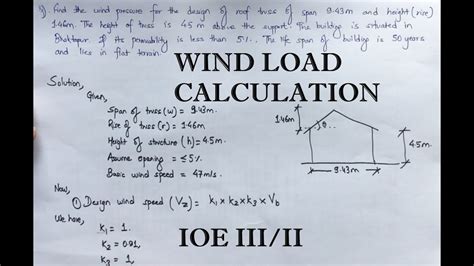 1) Find the wind pressure for the design of roof truss of span 9.43m and height (rise)
1.46m. The height of truss is 4.5 m above the support. The building is situated in
Bhaktapur. If its permeability is less than 5%. The life span of building is 50 years
and lies in flat terrain.
Solution,
Given,
Span of truss (w) = 9.43m.
Rise of truss (r) = 1.46m
Height of structure (h) = 4.5m.
Assume opening = ≤5%
Basic wind speed = 47m/s.
Now,
① Design wind speed (Vz) = k₁ x k₂ x k₃ x Vb
We have,
K₁ = 1.
K₂ = 0.91,
K₃ = 1,
WIND LOAD
CALCULATION
1.46m
4.5m.
9.43m
IOE III/II